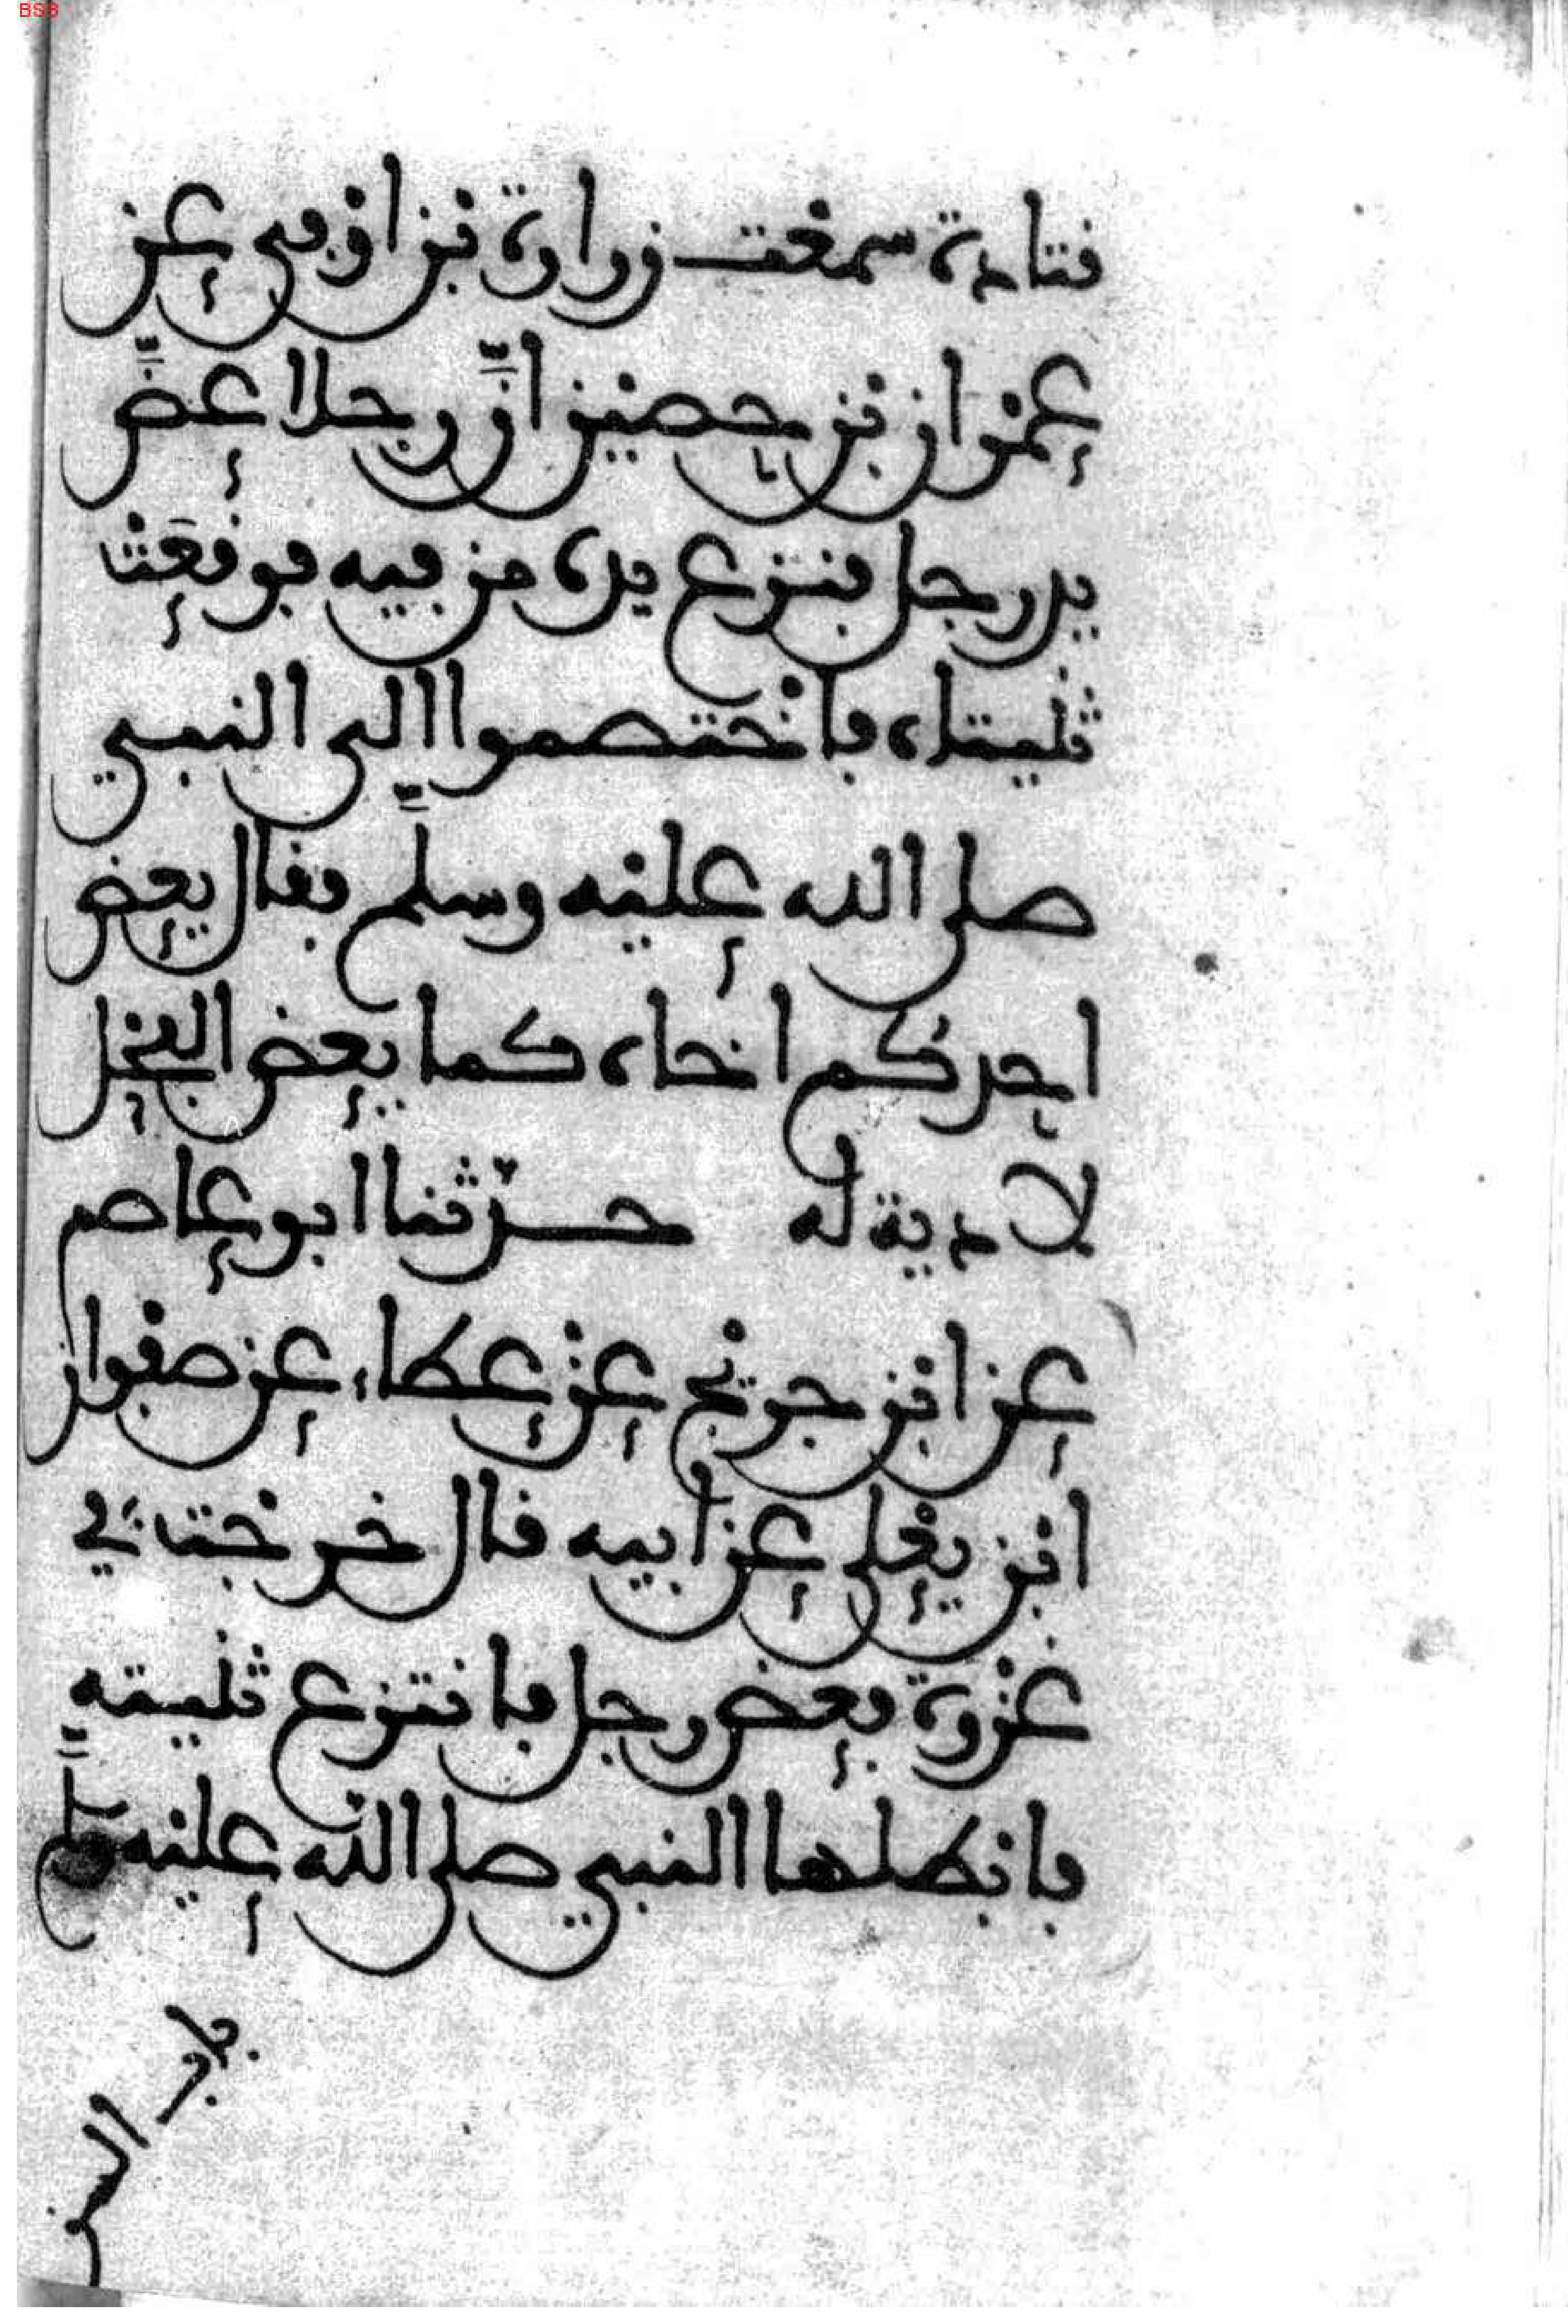 BSB
قتادة سمعت زرارة بن اوفى عن
عمران بن حصين انّ رجلا عضّ
يد رجل فنزع يده من فيه فوقعت
ثنيتاه فاختصموا الى النبي
صلى الله عليه وسلّم فقال يعض
احدكم اخاه كما يعض الفحل
لا دية له حدّثنا ابو عاصم
عن ابن جريج عن عطاء عن صفوان
ابن يعلى عن ابيه قال خرجت في
غزوة فعض رجل فانتزع ثنيته
فابطلها النبي صلى الله عليه سلّم
باب
السن